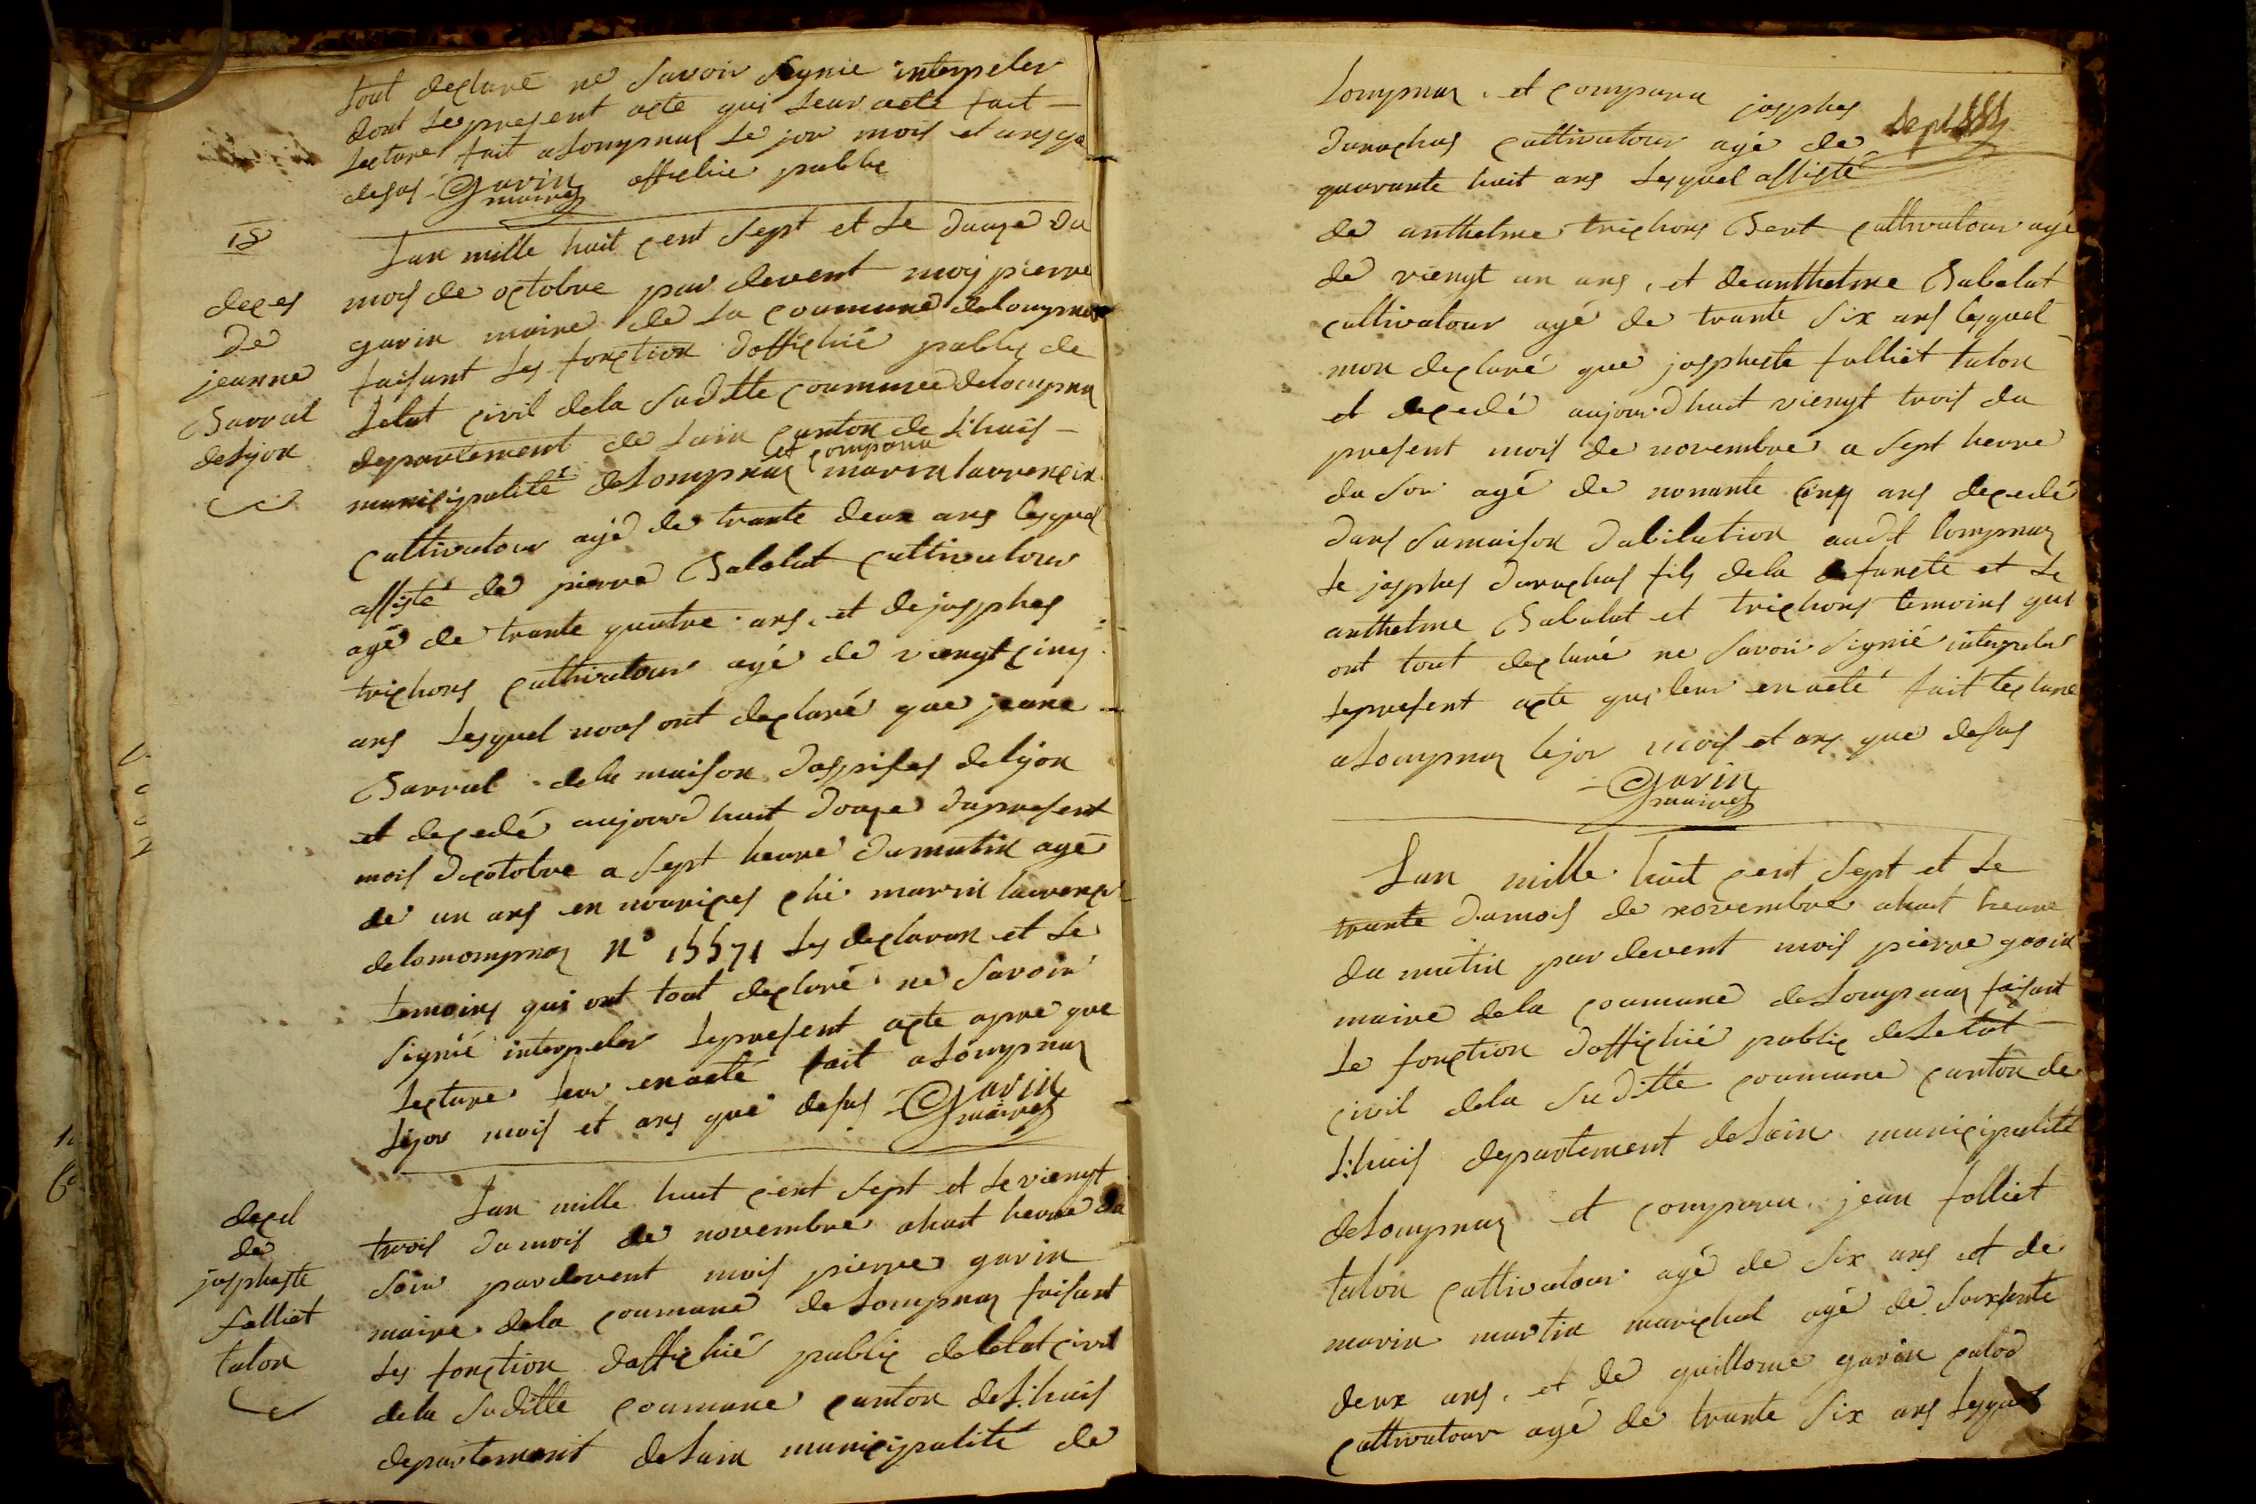 tout declare ne Savoir Signié interpeler
dont le present acte qui leur acté fait
lecture fait a lompnas le jor mois et ans que
desus Gavin maire offichié public
18
Lan mille huit cent Sept et le douze du
deces
mois de octobre par devent moy pierre
de
gavin maire de la coumune de lompnas
jeanne
faisant les fonction dofficihié public de
Barral
Letat civil dela Suditte coummune de lompnas
delyon
departement de Lain canton de L:huis
et comparu
municipalité de lompnas marin laurencin
cultivatour agé de trante deux ans lesquel
assisté de pierre Babolat cultivatour
agé de trante quatre ans, et de josphes
trichons cultivatour agé de viengt cinq
ans lesquel nous ont declaré que jeane
Barral dela maison dospises de lyon
et decedé aujourdhuit douze du present
mois doctobre a Sept heure du matin agé
de un ans en nourices ché marin laurencin
de lomompnas n° 15571 les declaran et le
temoins qui ont tout declaré ne Savoir
Signié interpeler le present acte apre que
lecture leur en acté fait a lompnas
le jor mois et ans que desus Gavin maire
Lan mille huit cent Sept et le viengt
deces
de
trois du mois de novembre a huit heure du
jospheste
Soir par devent mois pierre gavin
folliet
maire dela coumune de lompnas faisant
talon
les fonction dofficihié public de letat civil
dela Suditte coumune canton de L:huis
departement de Lain municipalité de
lompnas, et comparu josphes
durochas cultivatour agé de
quarante huit ans lesquel assisté
de anthelme trichons Bent cultivatour agé
de viengt un ans, et de anthelme Babolat
cultivatour agé de trante Six ans lesquel
mon declaré que jospheste folliet talon
et decedé aujourdhuit viengt trois du
present mois de novembre a Sept heure
du Soir agé de nonante cinq ans decedé
dans Sa maison dabitation audit lompnas
le josphes durochas fils dela defuncte et le
anthelme Babolat et trichons temoins qui
ont tout declaré ne Savoir Signié interpeler
le present acte qui leur en acté fait lecture
a lompnas le jor mois et ans que desus
Gavin
maire
Lan mille huit cent Sept et le
trante du mois de novembre a huit heure
du matin par devent mois pierre gavin
maire dela coumune de lompnas faisant
le fonction dofficihié public de Letat
civil dela Suditte coumune canton de
L:huis departement de Lain municipalité
de lompnas et comparu jean folliet
talon cultivatour agé de Six ans et de
marin martin marichal agé de Soixsente
deux ans, et de guillome gavin
cultivatour agé de trante Six ans lesquel